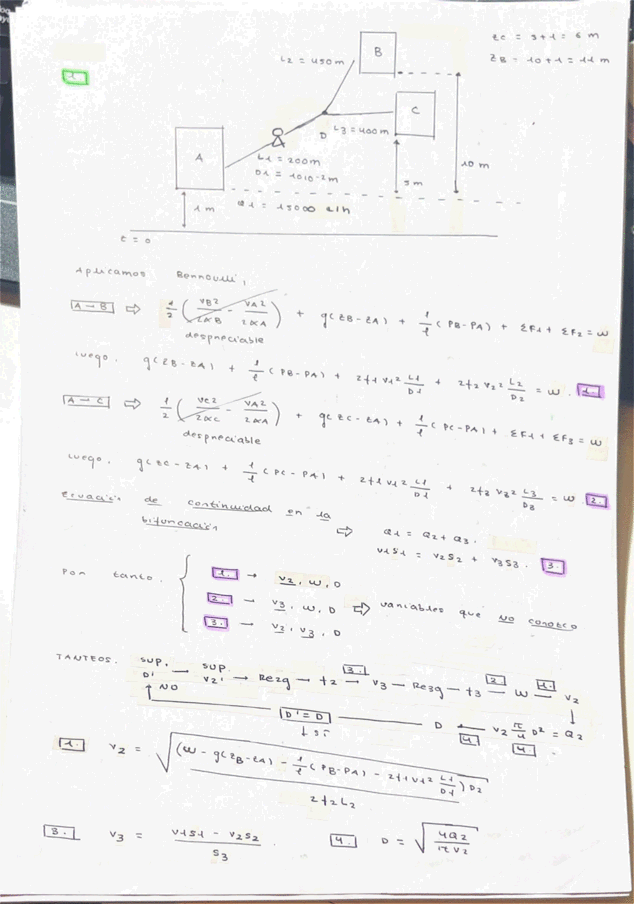 1.
zc = 5+1 = 6 m
zB = 10+1 = 11 m
L2 = 450 m
B
C
D
L3 = 400m
A
L1 = 200m
D1 = 10·10^-2 m
10 m
5 m
1 m
Q1 = 15000 l/h
z = 0
Aplicamos Bernoulli;
A-B ⇨ 1/2 (VB²/2αB - VA²/2αA) + g(zB-zA) + 1/ρ (PB-PA) + ΣF1 + ΣF2 = W
despreciable
Luego. g(zB-zA) + 1/ρ (PB-PA) + 2f1 V1² L1/D1 + 2f2 V2² L2/D2 = W. 1.
A-C ⇨ 1/2 (VC²/2αC - VA²/2αA) + g(zC-zA) + 1/ρ (PC-PA) + ΣF1 + ΣF3 = W
despreciable
Luego. g(zC-zA) + 1/ρ (PC-PA) + 2f1 V1² L1/D1 + 2f3 V3² L3/D3 = W 2.
Ecuación de continuidad en la
bifurcación ⇨ Q1 = Q2 + Q3.
V1S1 = V2S2 + V3S3. 3.
Por tanto.
1. → V2, W, D
2. → V3, W, D ⇨ variables que NO conozco
3. → V2, V3, D
TANTEOS. SUP. D' → SUP. V2' → Re2g → f2 → 3. V3 → Re3g → f3 → 2. W → 1. V2
NO
D' = D D ← 4. V2 π/4 D² = Q2 4.
↓ si
1. V2 = √((W - g(zB-zA) - 1/ρ (PB-PA) - 2f1V1² L1/D1) D2 / 2f2L2)
3. V3 = V1S1 - V2S2 / S3. 4. D = √(4Q2 / πV2)